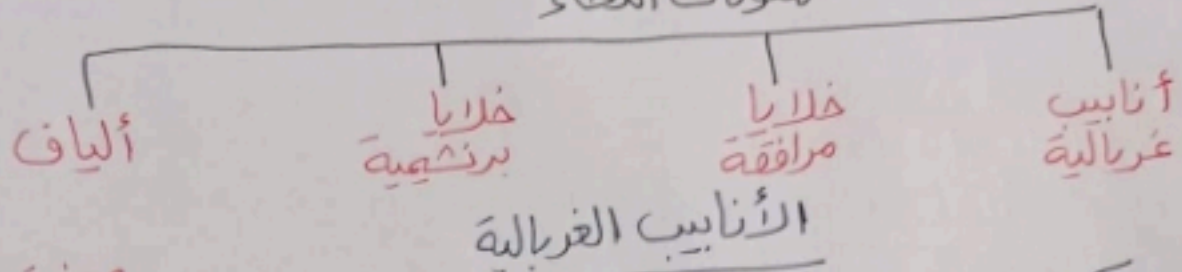 أنابيب غربالية
خلايا مرافقة
خلايا برنشيمية
ألياف
الأنابيب الغربالية